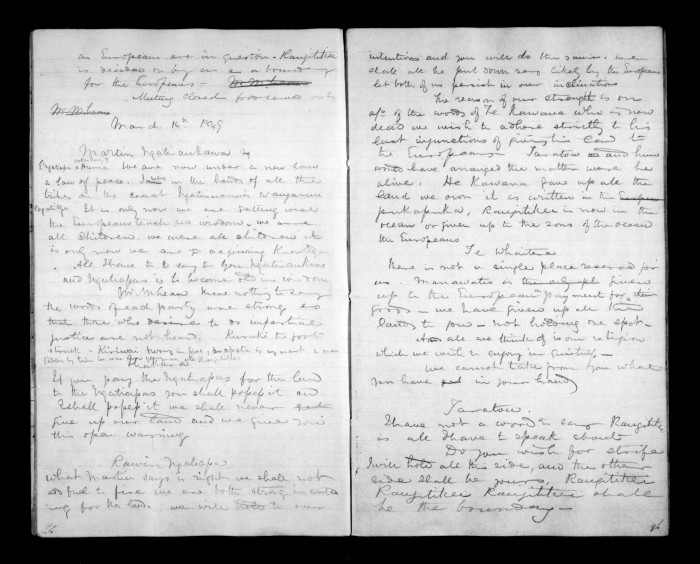 as Europeans are in question - Rangitikei
is decided on by us as a boundary
for the Europeans -
Meeting closed food comes out
March 16th 1849
Martin Ngatiraukawa
We are now under a new law
a law of peace. I was in the hands of all the
tribes on the coast
It is only now we are getting wise
the Europeans teach us wisdom - we are
all children. we were all children it
is only now we are acquiring knowledge
All I have to say to you Ngatiraukawa
and Ngatiapas is to become old in wisdom
Mr. McLean I have nothing to say
the words of each party are strong so
that those who desire to do impartial
justice are not heard.
If you pay the Ngatiapas for this land
to the Ngatiapas you shall possess it and
I shall possess it we shall never
give up our land and we give you
this open warning
Rawiri Ngatiapa
What Martin says is right we shall not
add fuel to fire we are both strong in
for the land. we will hold to our
intentions and you will do the same. we
shall all be put down very likely by the Europeans
let both of us persist in our inclinations
The reason of our strength is on
of the words of Te Kawana who is now
dead we wish to adhere strictly to his
last injunctions of giving his land to
the Europeans. Taratoa and him
would have arranged the matter were he
alive. Te Kawana gave up all the
land we own it as written in the
pukapuka, Rangitikei is now in the
ocean or given up to the sons of the ocean
the Europeans
Te Whaitere
There is not a single place reserved for
us. Manawatu is given
up to the European payment for their
goods - we have given up all the
lands to you - not holding one spot -
all we think of is our religion
which we wish to enjoy in quiet -
We cannot take from you what
you have in your hand
Taratoa
I have not a word to say Rangitikei
is all I have to speak about
Do you wish for strife
I will hold all this side, and the other
side shall be yours. Rangitikei
Rangitikei Rangitikei shall
be the boundary -